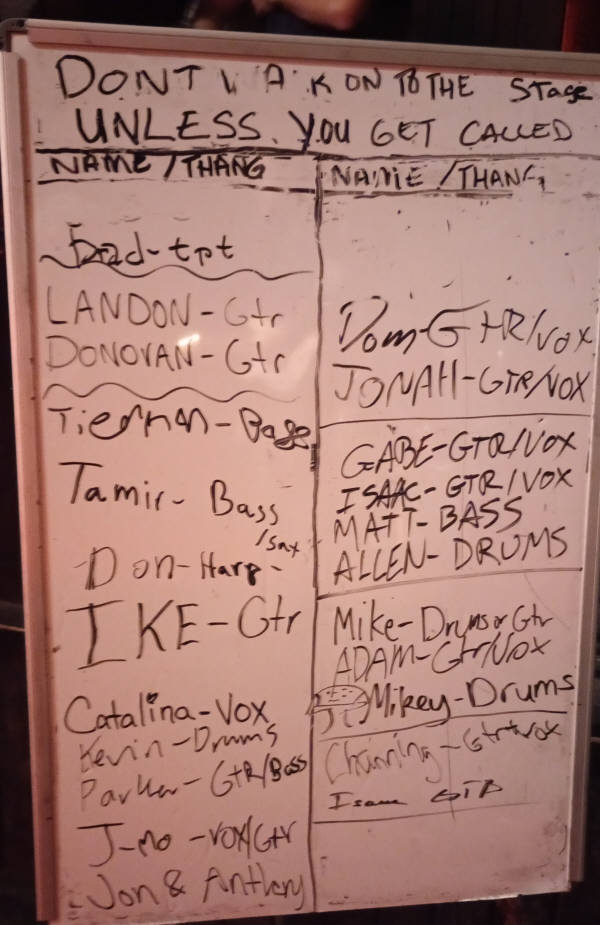 DONT WALK ON TO THE STAGE
UNLESS YOU GET CALLED
NAME/THANG
- tpt
LANDON - Gtr
DONOVAN - Gtr
Tiernan - Bass
Tamir - Bass
/Sax
Don - Harp -
IKE - Gtr
Catalina - Vox
Kevin - Drums
Parker - GtR/Bass
J-mo - VOX/Gtr
Jon & Anthony
NAME/THANG
Dom - GTR/VOX
JONAH - GTR/VOX
GABE - GTR/VOX
ISAAC - GTR/VOX
MATT - BASS
ALLEN - DRUMS
Mike - Drums or Gtr
ADAM - Gtr/Vox
Mikey - Drums
Channing - Gtr+vox
GTR